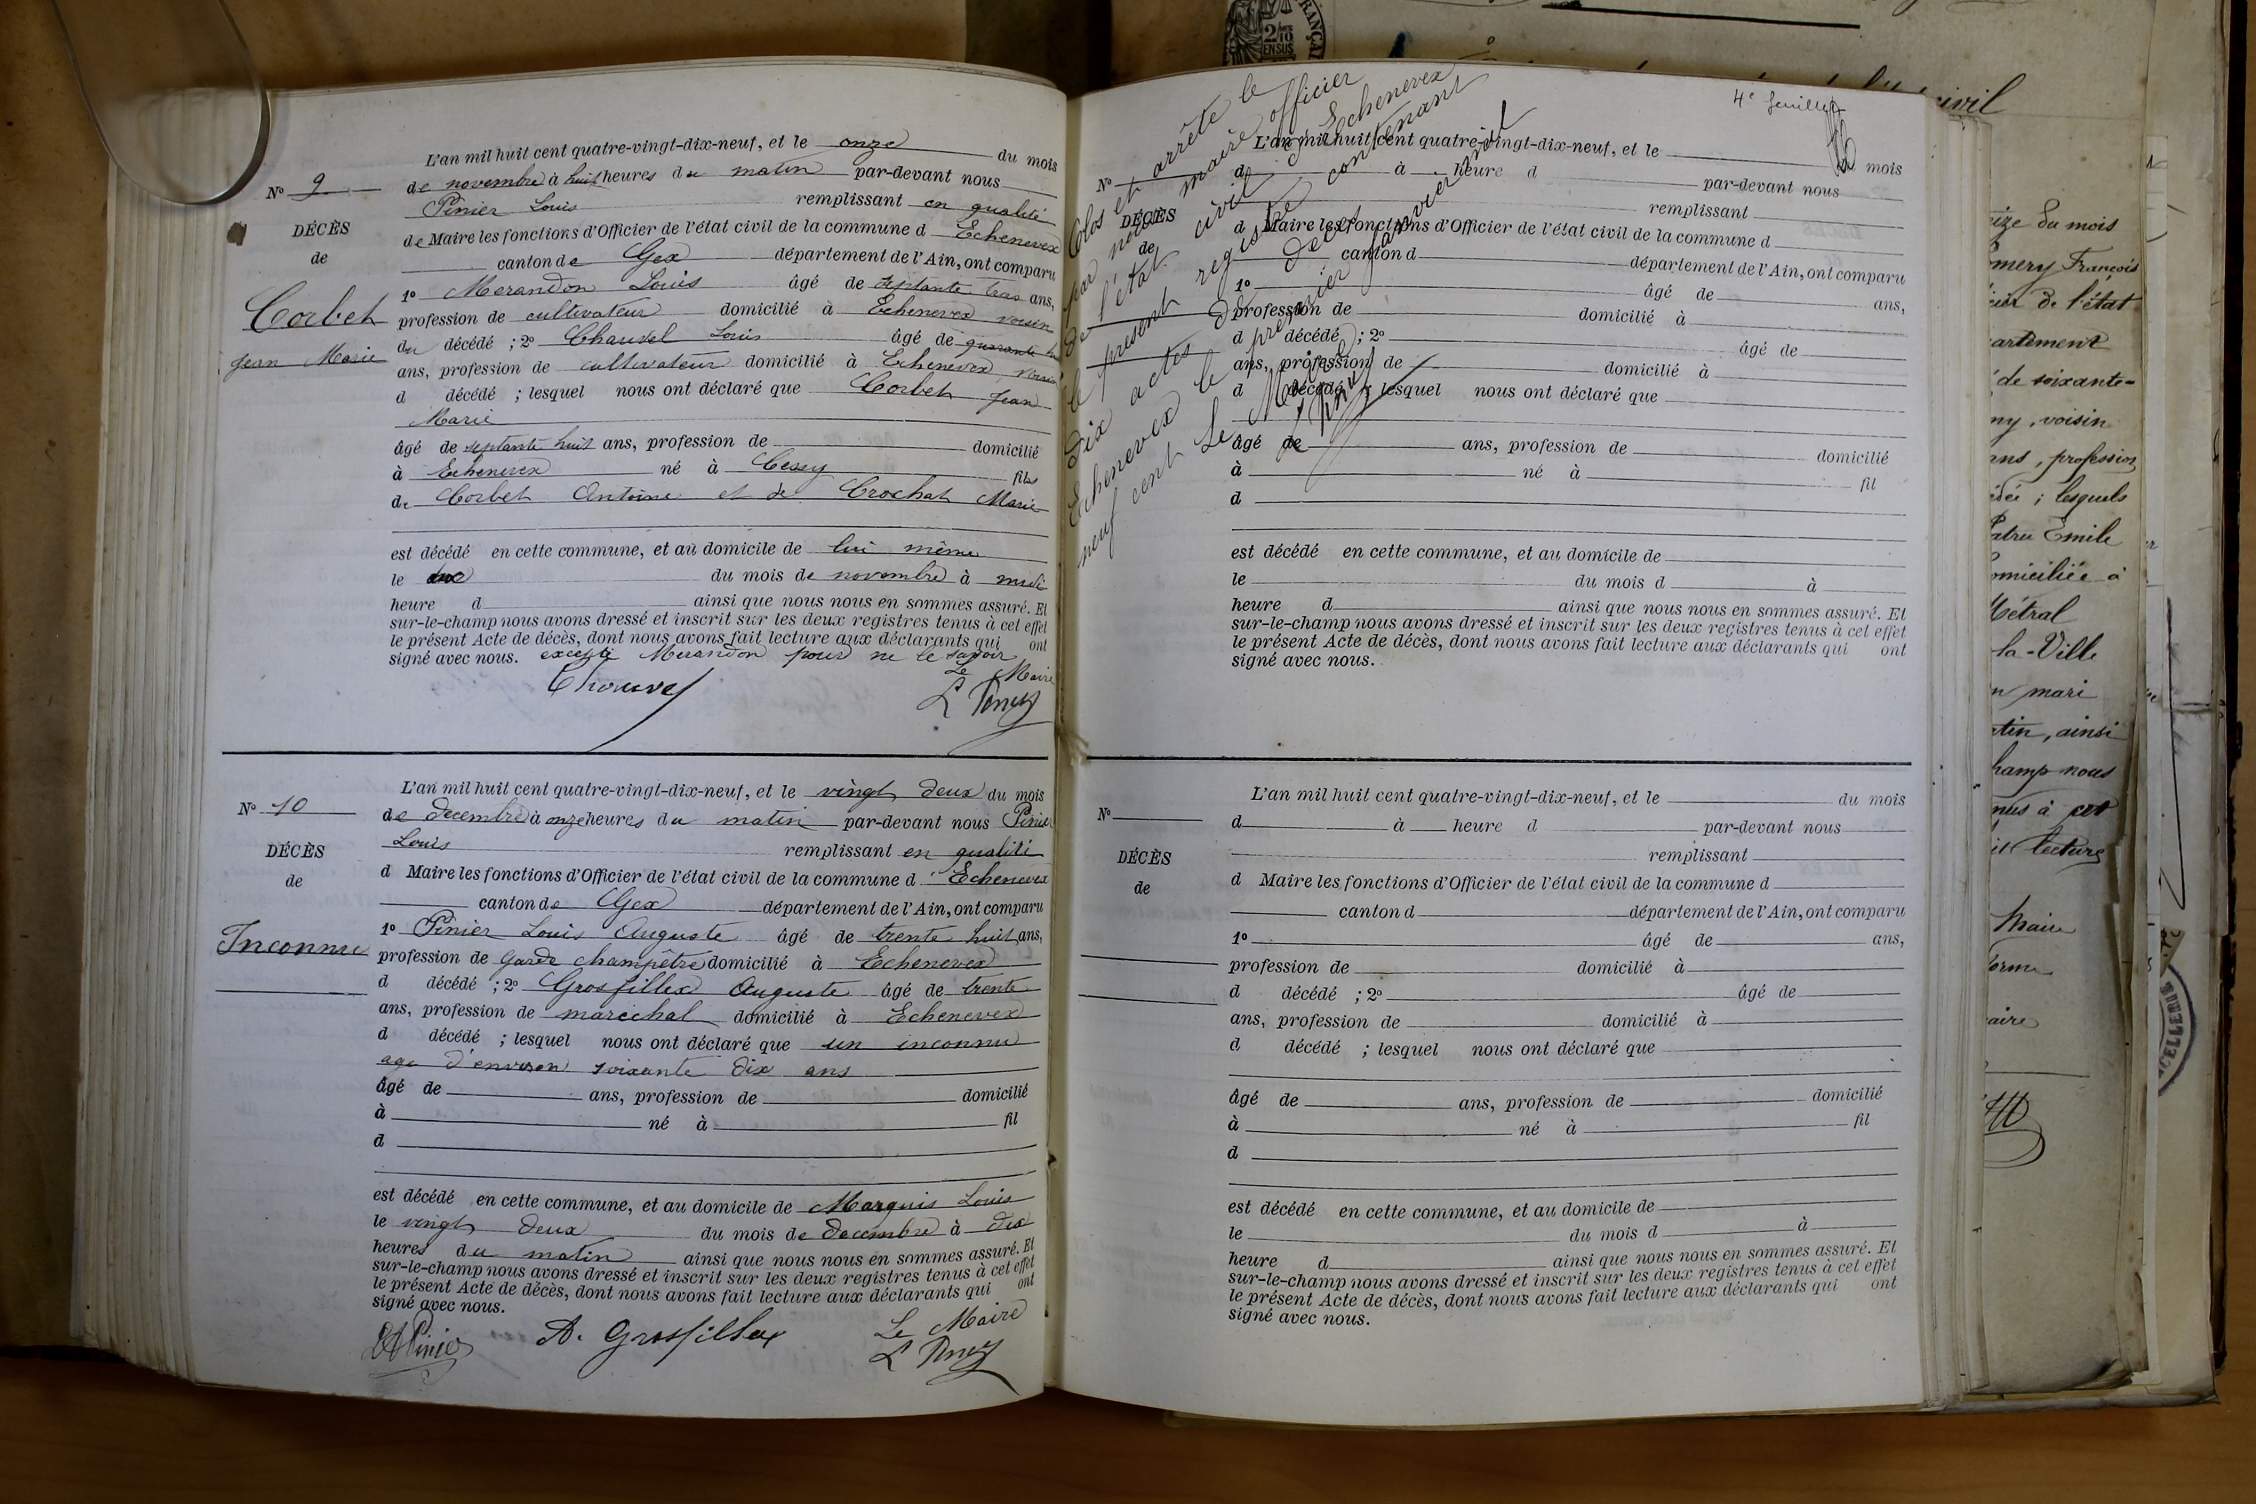 L'an mil huit cent quatre-vingt-dix-neuf, et le onze du mois
N° 9
de novembre à huit heures du matin par-devant nous
Pinier Louis remplissant en qualité
DÉCÈS
de
de Maire les fonctions d'Officier de l'état civil de la commune d Echenevex
canton de Gex département de l'Ain, ont comparu
1° Merandon Louis âgé de septante trois ans,
Corbet
Jean Marie
profession de cultivateur domicilié à Echenevex voisin
du décédé ; 2° Chauvel Louis âgé de quarante
ans, profession de cultivateur domicilié à Echenevex, voisin
d décédé ; lesquel nous ont déclaré que Corbet Jean
Marie
âgé de septante huit ans, profession de domicilié
à Echenevex né à Cessy fils
de Corbet Antoine et de Crochat Marie
est décédé en cette commune, et au domicile de lui même
le du mois de novembre à midi
heure d ainsi que nous nous en sommes assuré. Et
sur-le-champ nous avons dressé et inscrit sur les deux registres tenus à cet effet
le présent Acte de décès, dont nous avons fait lecture aux déclarants qui ont
signé avec nous. excepté Merandon pour ne le savoir
Le Maire
Chouvel
L Piney
L'an mil huit cent quatre-vingt-dix-neuf, et le vingt deux du mois
N° 10
de decembre à onze heures du matin par-devant nous Pinier
Louis remplissant en qualité
DÉCÈS
de
d Maire les fonctions d'Officier de l'état civil de la commune d Echenevex
canton de Gex département de l'Ain, ont comparu
Inconnu
1° Pinier Louis Auguste âgé de trente huit ans,
profession de garde champêtre domicilié à Echenevex
d décédé ; 2° Grosfillex Auguste âgé de trente
ans, profession de maréchal domicilié à Echenevex
d décédé ; lesquel nous ont déclaré que un inconnu
age d'environ soixante dix ans
âgé de ans, profession de domicilié
à né à fil
d
est décédé en cette commune, et au domicile de Marquis Louis
le vingt deux du mois de decembre à dix
heures du matin ainsi que nous nous en sommes assuré. Et
sur-le-champ nous avons dressé et inscrit sur les deux registres tenus à cet effet
le présent Acte de décès, dont nous avons fait lecture aux déclarants qui ont
signé avec nous.
Le Maire
A. Grosfillex
L Piney
4e feuillet
Clos et arrêté le
par nous maire officier
de l'état civil d'Echenevex
le présent registre contenant
dix actes de décès
Echenevex le premier janvier mil
neuf cent Le Maire
L'an mil huit cent quatre-vingt-dix-neuf, et le du mois
N°
d à heure d par-devant nous
remplissant
DÉCÈS
de
d Maire les fonctions d'Officier de l'état civil de la commune d
canton d département de l'Ain, ont comparu
1° âgé de ans,
profession de domicilié à
d décédé ; 2° âgé de
ans, profession de domicilié à
d décédé ; lesquel nous ont déclaré que
âgé de ans, profession de domicilié
à né à fil
d
est décédé en cette commune, et au domicile de
le du mois d à
heure d ainsi que nous nous en sommes assuré. Et
sur-le-champ nous avons dressé et inscrit sur les deux registres tenus à cet effet
le présent Acte de décès, dont nous avons fait lecture aux déclarants qui ont
signé avec nous.
L'an mil huit cent quatre-vingt-dix-neuf, et le du mois
N°
d à heure d par-devant nous
remplissant
DÉCÈS
de
d Maire les fonctions d'Officier de l'état civil de la commune d
canton d département de l'Ain, ont comparu
1° âgé de ans,
profession de domicilié à
d décédé ; 2° âgé de
ans, profession de domicilié à
d décédé ; lesquel nous ont déclaré que
âgé de ans, profession de domicilié
à né à fil
d
est décédé en cette commune, et au domicile de
le du mois d à
heure d ainsi que nous nous en sommes assuré. Et
sur-le-champ nous avons dressé et inscrit sur les deux registres tenus à cet effet
le présent Acte de décès, dont nous avons fait lecture aux déclarants qui ont
signé avec nous.
civil
du mois
François
de l'état
de soixante-
voisin
profession
lesquels
Émile
Métral
la-Ville
mari
ainsi
nous
à cet
lecture